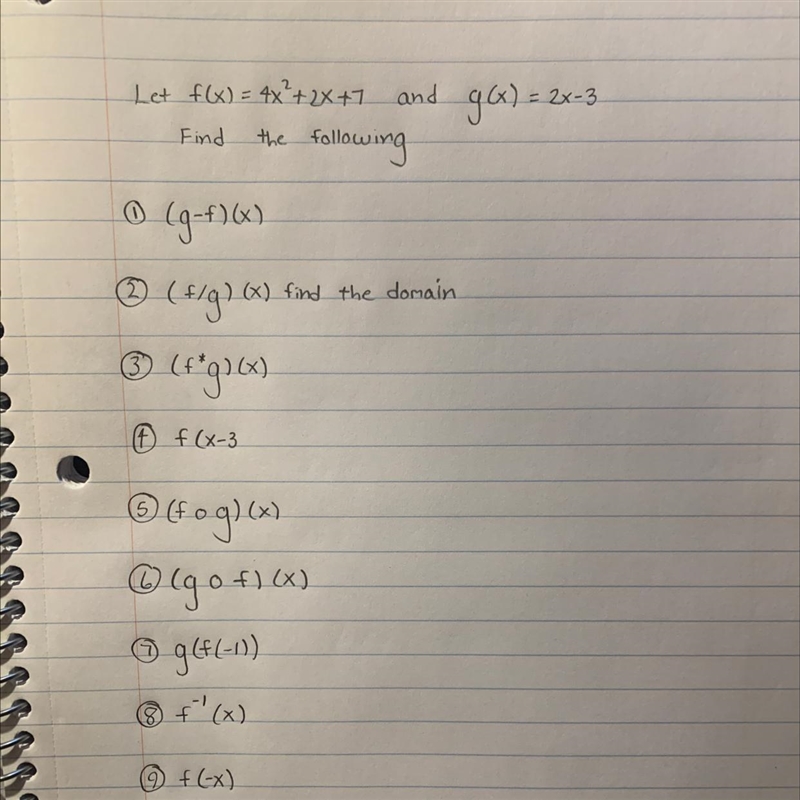 Let f(x) = 4x²+2x+7 and g(x) = 2x-3
Find the following
① (g-f)(x)
② (f/g)(x) find the domain
③ (f*g)(x)
④ f(x-3
⑤ (f o g)(x)
⑥ (g o f)(x)
⑦ g(f(-1))
⑧ f⁻¹(x)
⑨ f(-x)